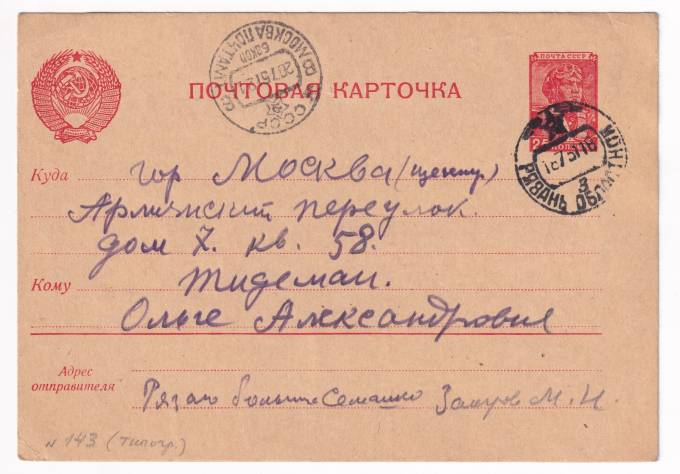 ПОЧТОВАЯ КАРТОЧКА
ПОЧТА СССР
МОСКВА ПОЧТАМТ
СССР
РЯЗАНЬ ОБЛ
Куда гор Москва (центр.)
Армянский переулок.
дом 7. кв. 58.
Кому Тидеман.
Ольге Александровне
Адрес
отправителя
Рязань больница Семашко М. И.
N 143 (типогр.)